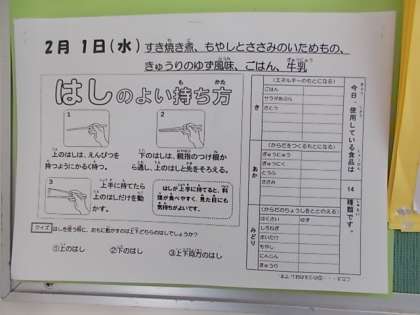 2月1日(水) すき焼き煮、もやしとささみのいためもの、
きゅうりのゆず風味、ごはん、牛乳
はしのよい持ち方
1
上のはしは、えんぴつを
持つようにかるく持つ。
2
下のはしは、親指のつけ根か
ら通し、上のはしと先をそろえる。
3
上手に持てたら
上のはしだけを動
かす。
はしが上手に持てると、料
理が食べやすく、見た目にも
気持ちがよいです。
クイズ
はしを使う時に、おもに動かすのは上下どちらのはしでしょうか？
①上のはし ②下のはし ③上下両方のはし
今日、使用している食品は
14
種類です。
き
(エネルギーのもとになる)
ごはん
サラダあぶら
さとう
あか
(からだをつくるもとになる)
ぎゅうにゅう
ぎゅうにく
とうふ
ささみ
みどり
(からだのちょうしをととのえる)
はくさい
ゆず
しらたき
もやし
にんじん
きゅうり